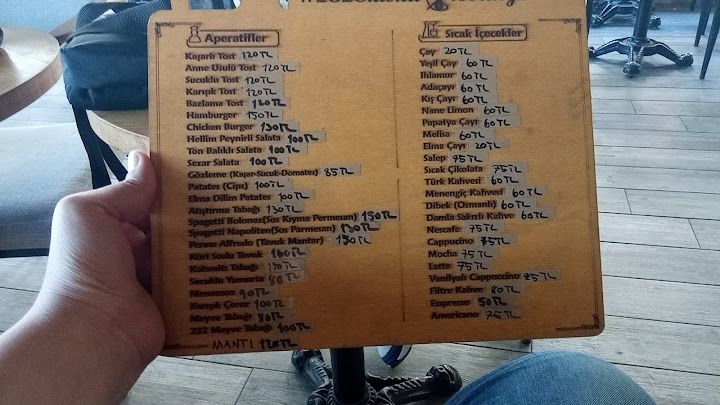 Aperatifler
Kaşarlı Tost 120TL
Anne Usulü Tost 120TL
Sucuklu Tost 120TL
Karışık Tost 120TL
Bazlama Tost
Hamburger 150TL
Chicken Burger 130TL
Hellim Peynirli Salata 100TL
Ton Balıklı Salata 100TL
Sezar Salata 100TL
Gözleme (Kaşar-Sucuk-Domates) 85TL
Patates (Cips) 100TL
Elma Dilim Patates 100TL
Atıştırma Tabağı 130TL
Spagetti Bolonez(Sos Kıyma Permesan) 150TL
Spagetti Napoliten(Sos Parmesan) 130TL
Penne Alfredo (Tavuk Mantar) 150TL
Köri Soslu Tavuk 160TL
Kahvaltı Tabağı 170TL
Sucuklu Yumurta 80TL
Menemen 90TL
Karışık Çerez 100TL
Meyve Tabağı 80TL
232 Meyve Tabağı 100TL
MANTI 120TL
Sıcak İçecekler
Çay 20TL
Yeşil Çay 60TL
Ihlamur 60TL
Adaçayı 60TL
Kış Çayı 60TL
Nane Limon 60TL
Papatya Çayı 60TL
Melisa 60TL
Elma Çayı 20TL
Salep 75TL
Sıcak Çikolata 75TL
Türk Kahvesi 60TL
Menengiç Kahvesi 60TL
Dibek (Osmanlı) 60TL
Damla Sakızlı Kahve 60TL
Nescafe 75TL
Cappucino 75TL
Mocha 75TL
Latte 75TL
Vanilyalı Cappuccino 75TL
Filtre Kahve 80TL
Espresso 50TL
Americano 75TL